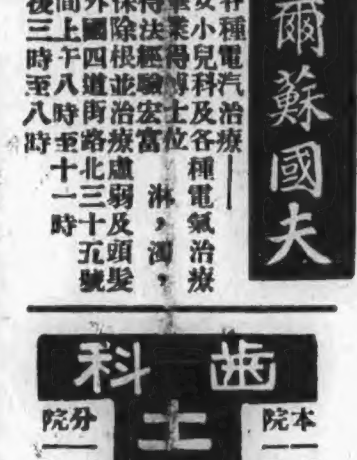 爾蘇國夫
各種電汽治療—
女小兒科及各種電氣治療
畢業得博士位
得法經驗宏富　淋，濁，
保除根並治療虛弱及頭髮
外國四道街路北三十五號
間上午八時至十一時
後三時至八時
歯科
本院
分院